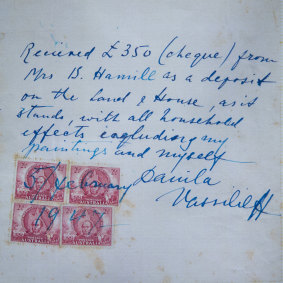 Received £350 (cheque) from
Mrs B. Hamill as a deposit
on the Land & House, as it
stands, with all household
effects excluding my
paintings and myself
5/ February Danila
1947 Vassilieff
AUSTRALIA AUSTRALIA
AUSTRALIA AUSTRALIA